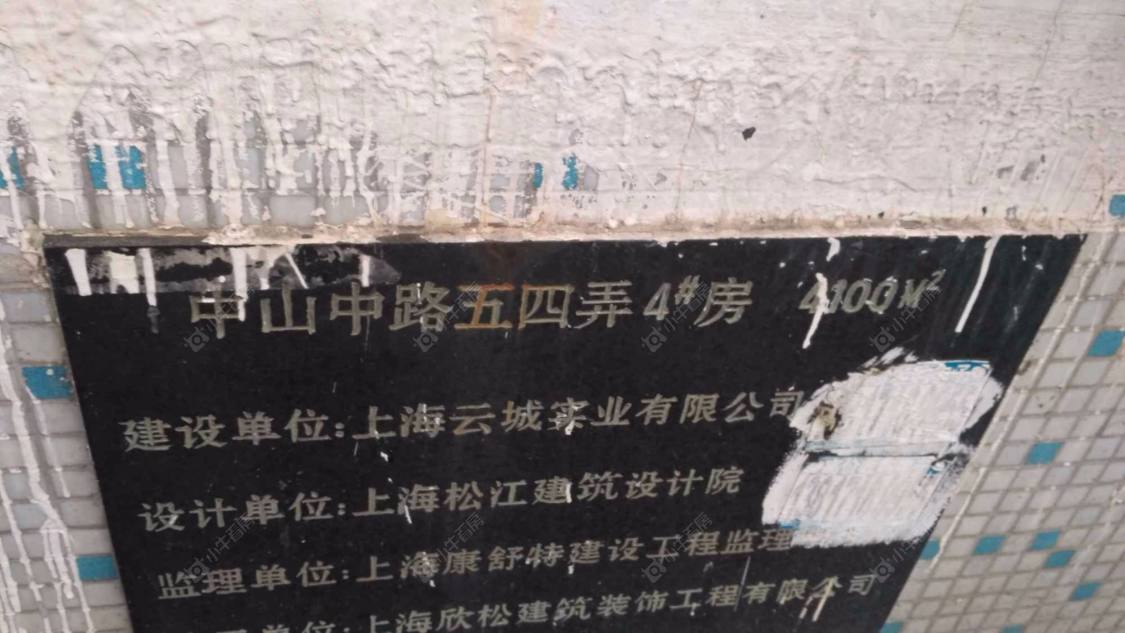 中山中路五四弄4#房 4100M²
建设单位:上海云城实业有限公司
设计单位:上海松江建筑设计院
监理单位:上海康舒特建设工程监理
单位:上海欣松建筑装饰工程有限公司
小牛看房